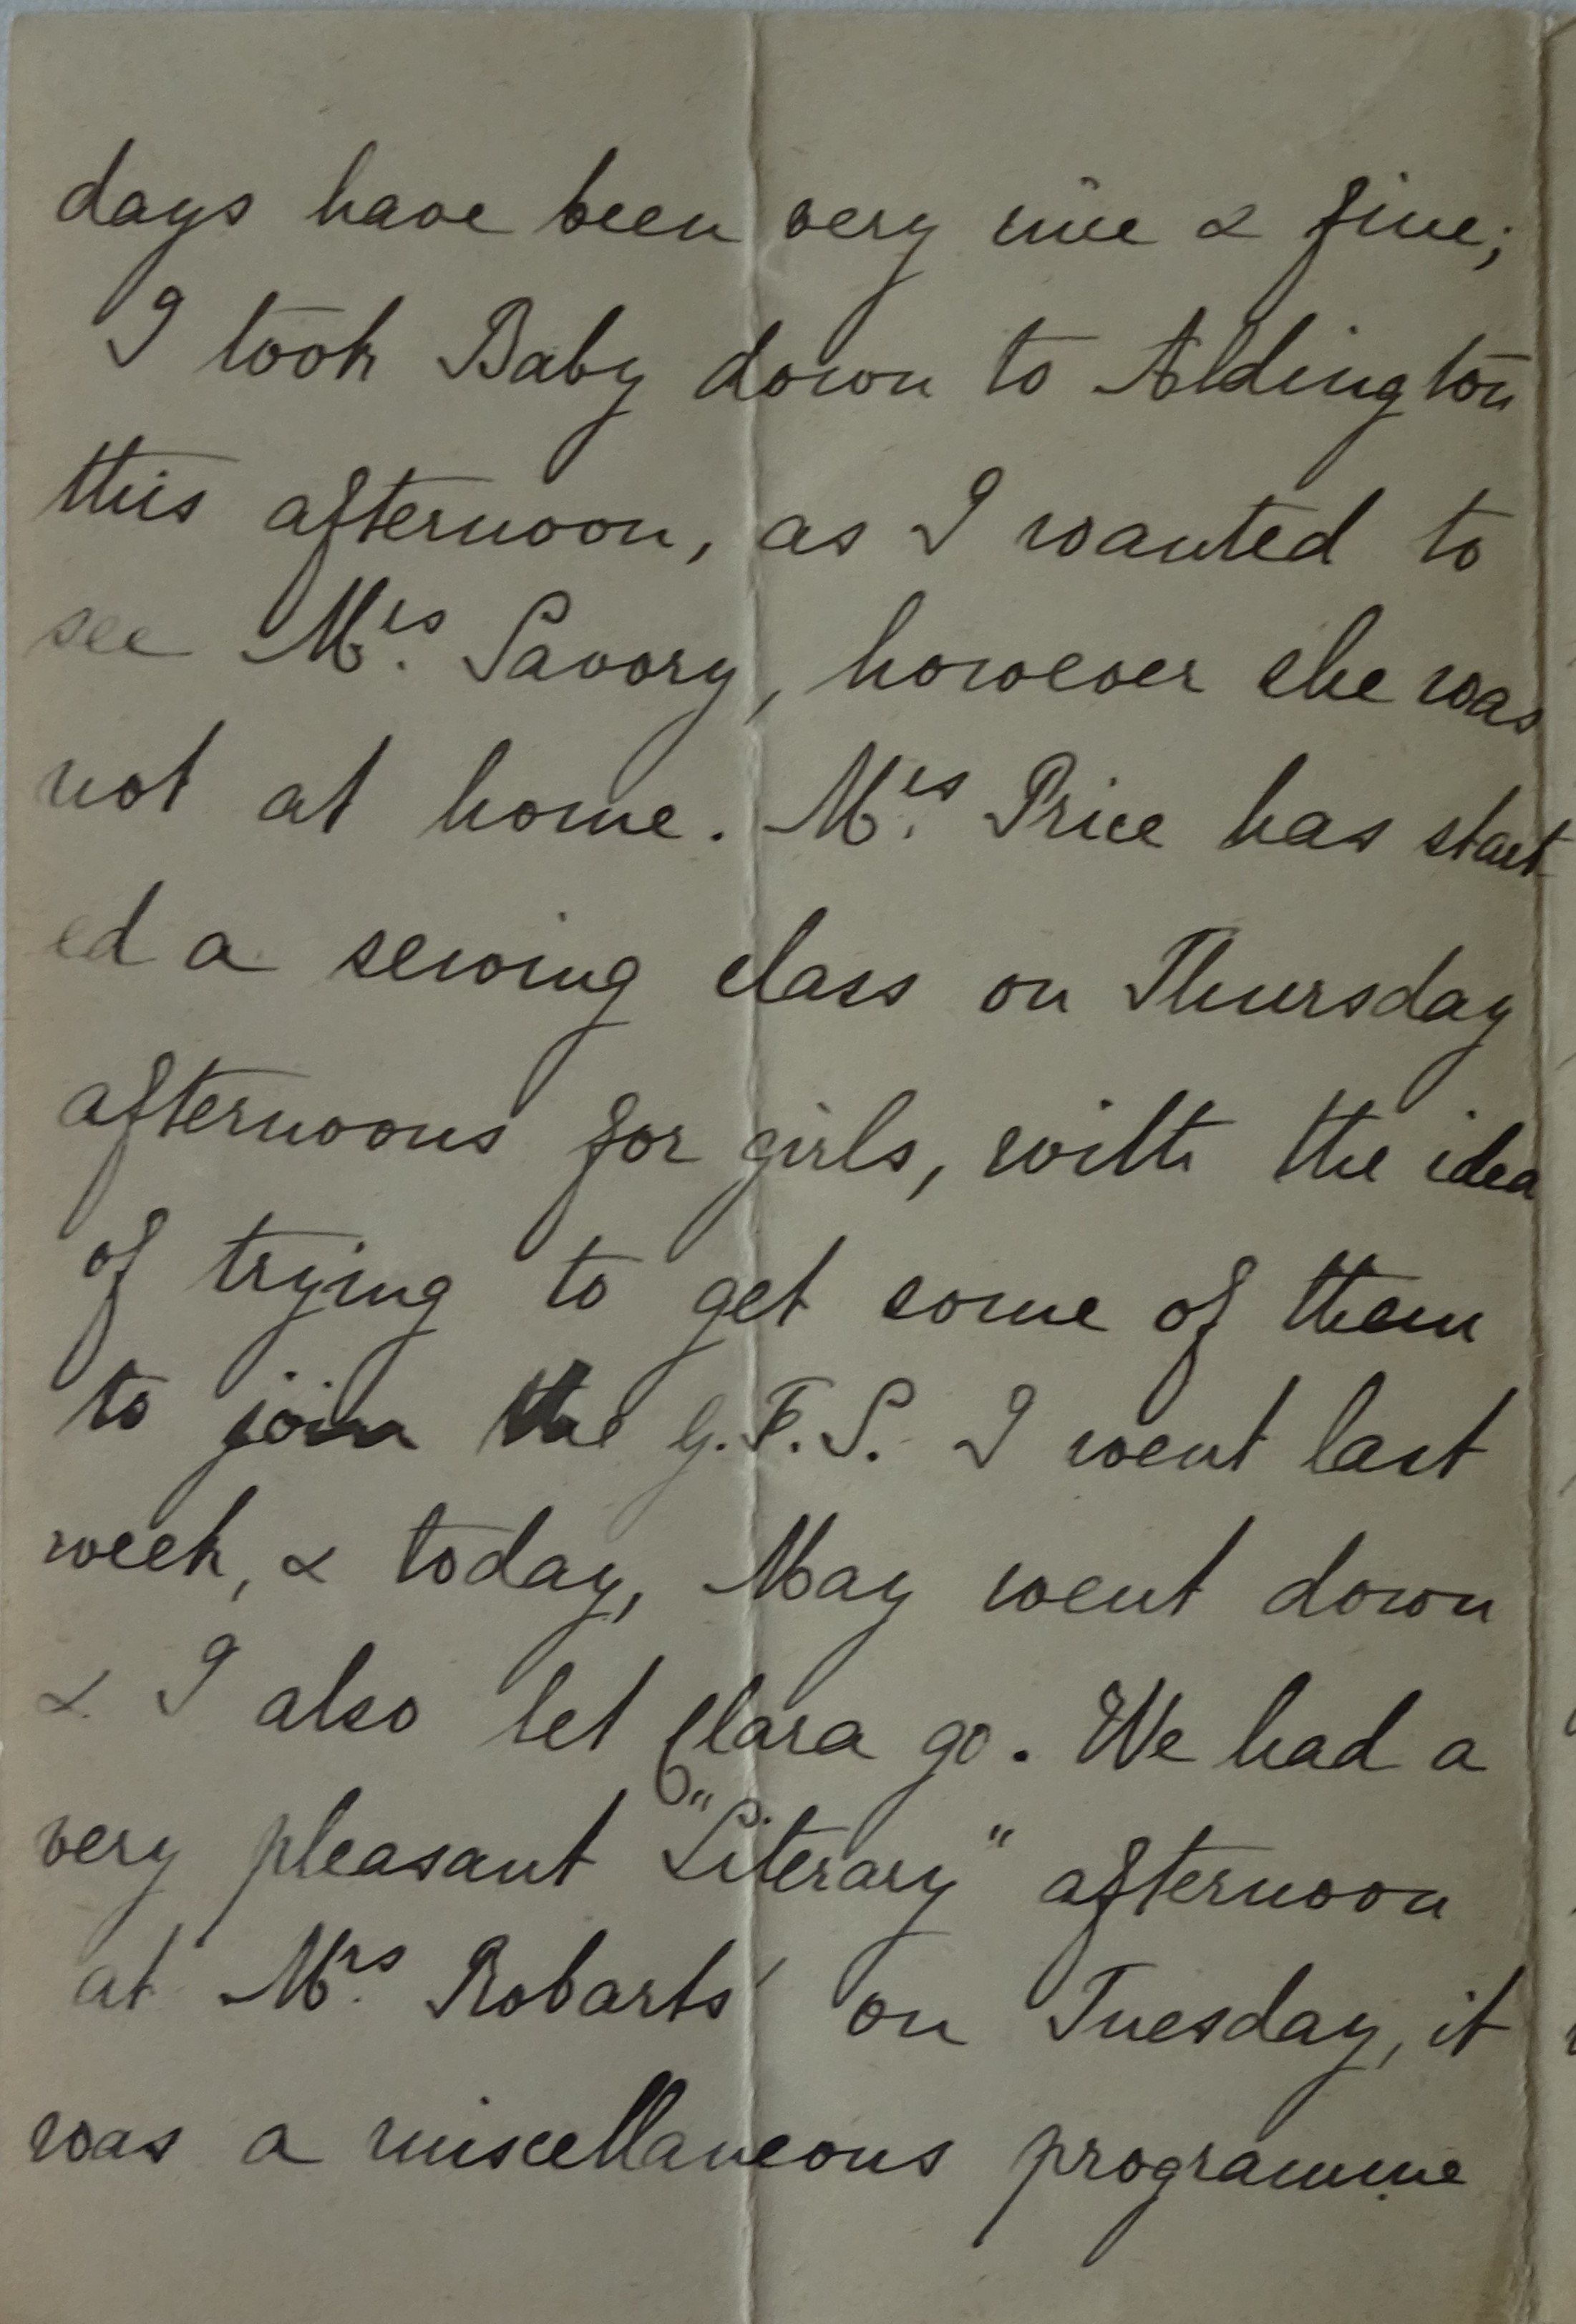 days have been very nice & fine;
I took Baby down to Aldington
this afternoon, as I wanted to
see Mrs. Savory, however she was
not at home. Mrs. Price has start
ed a sewing class on Thursday
afternoons for girls, with the idea
of trying to get some of them
to join the G.F.S. I went last
week, & today, May went down
& I also let Clara go. We had a
very pleasant "Literary" afternoon
at Mrs. Robarts' on Tuesday, it
was a miscellaneous programme